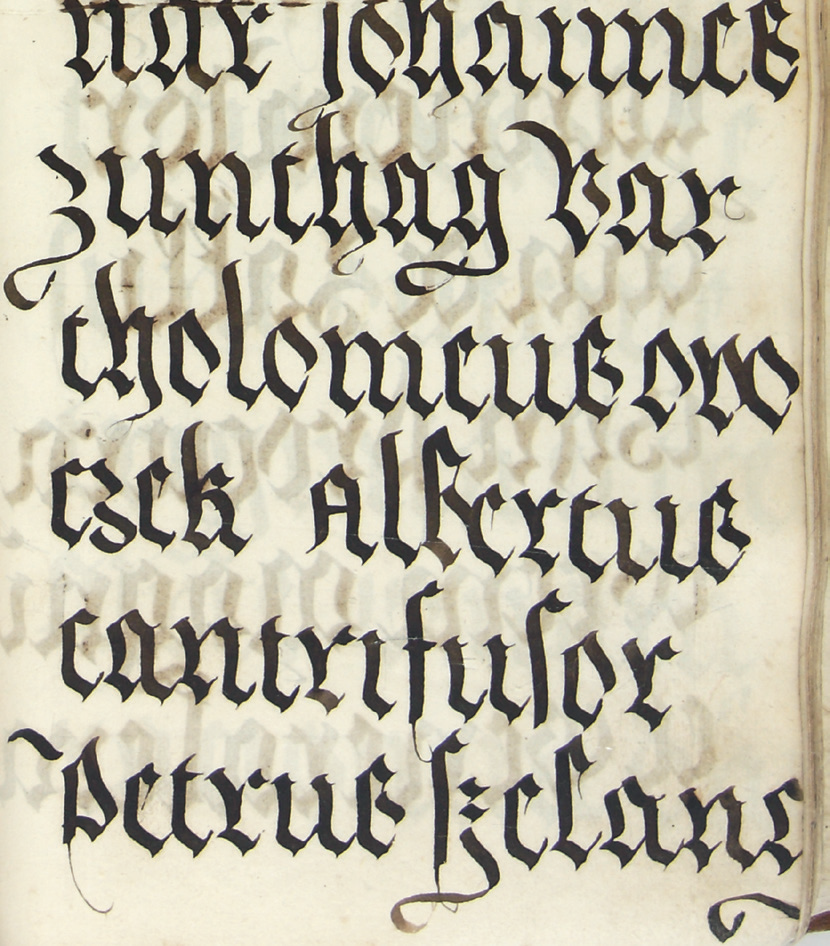 nar johannes
zunthag Bar
tholomeus owo
czek Albertus
cantrifusor
Petrus szelanc